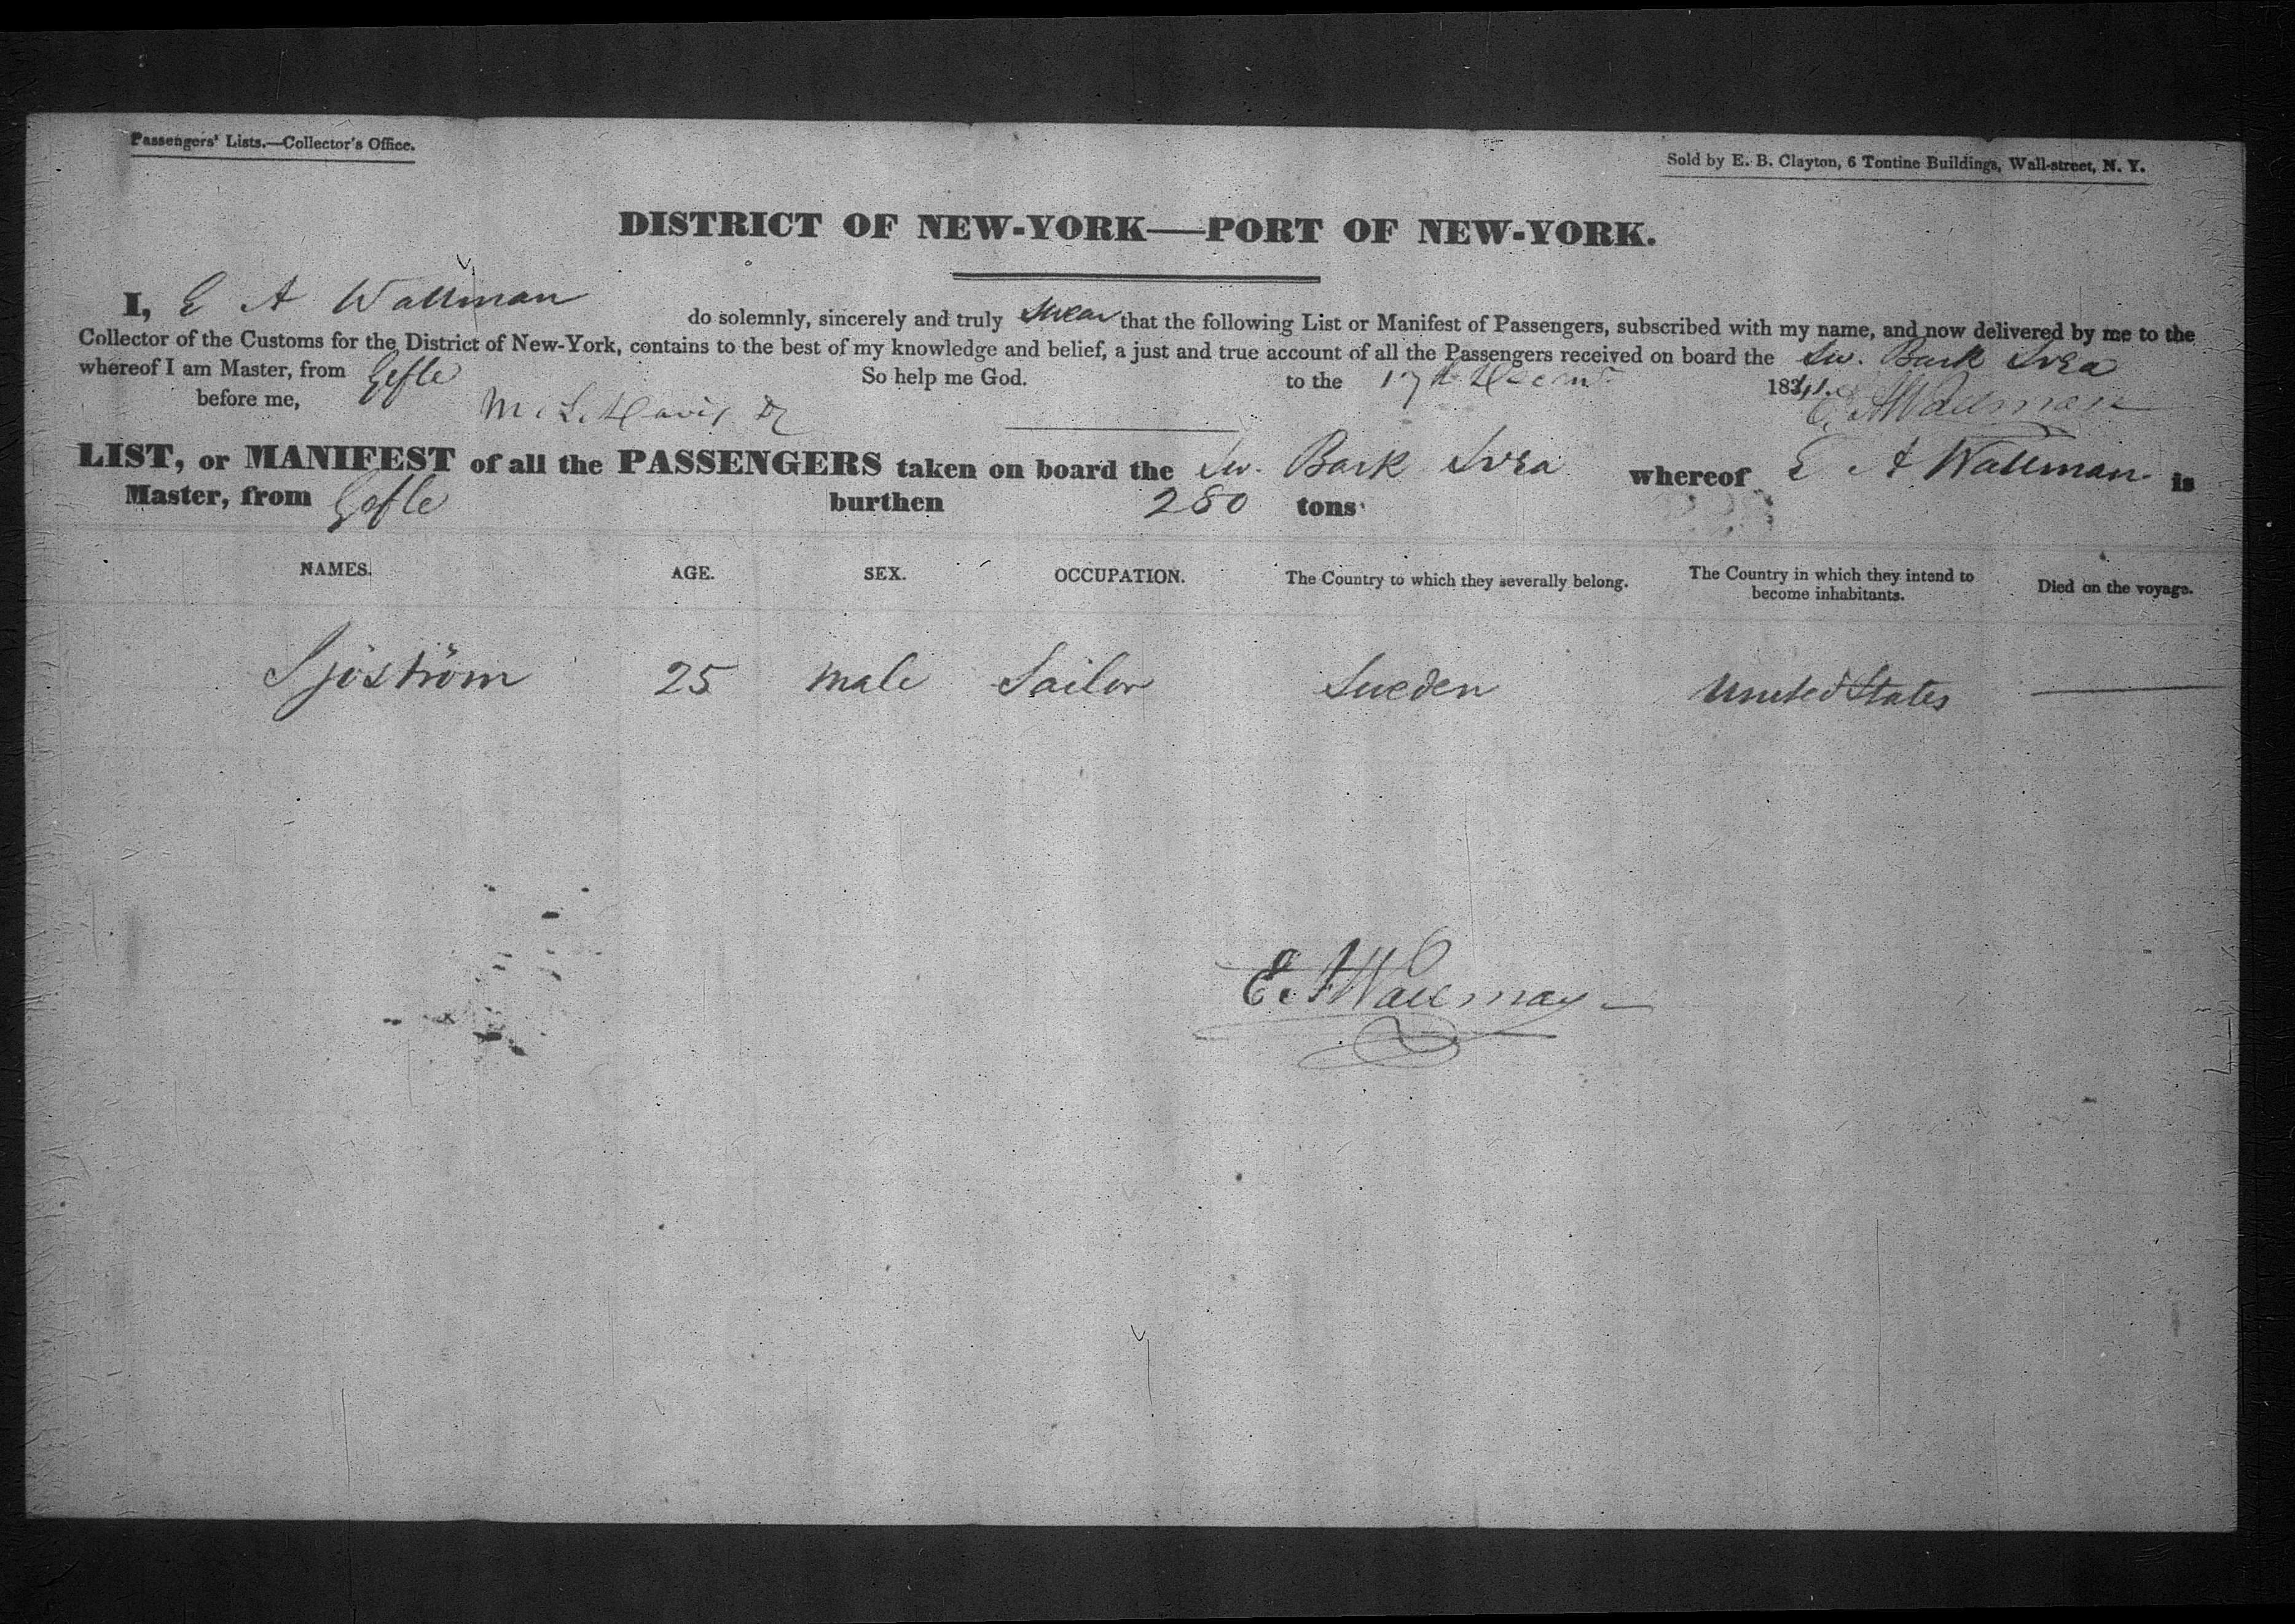 Passengers' Lists.—Collector's Office.
Sold by E. B. Clayton, 6 Tontine Buildings, Wall-street, N. Y.
DISTRICT OF NEW-YORK—PORT OF NEW-YORK.
I, E A Wallman do solemnly, sincerely and truly swear that the following List or Manifest of Passengers, subscribed with my name, and now delivered by me to the
Collector of the Customs for the District of New-York, contains to the best of my knowledge and belief, a just and true account of all the Passengers received on board the Sw. Bark Svea
whereof I am Master, from Gefle So help me God. to the 17th 1841.
before me, M. L. Davis E. A Wallman
LIST, or MANIFEST of all the PASSENGERS taken on board the Sw. Bark Svea whereof E A Wallman is
Master, from Gefle burthen 280 tons
NAMES. AGE. SEX. OCCUPATION. The Country to which they severally belong. The Country in which they intend to become inhabitants. Died on the voyage.
Sjöström 25 male Sailor Sweden United States
E. A Wallman